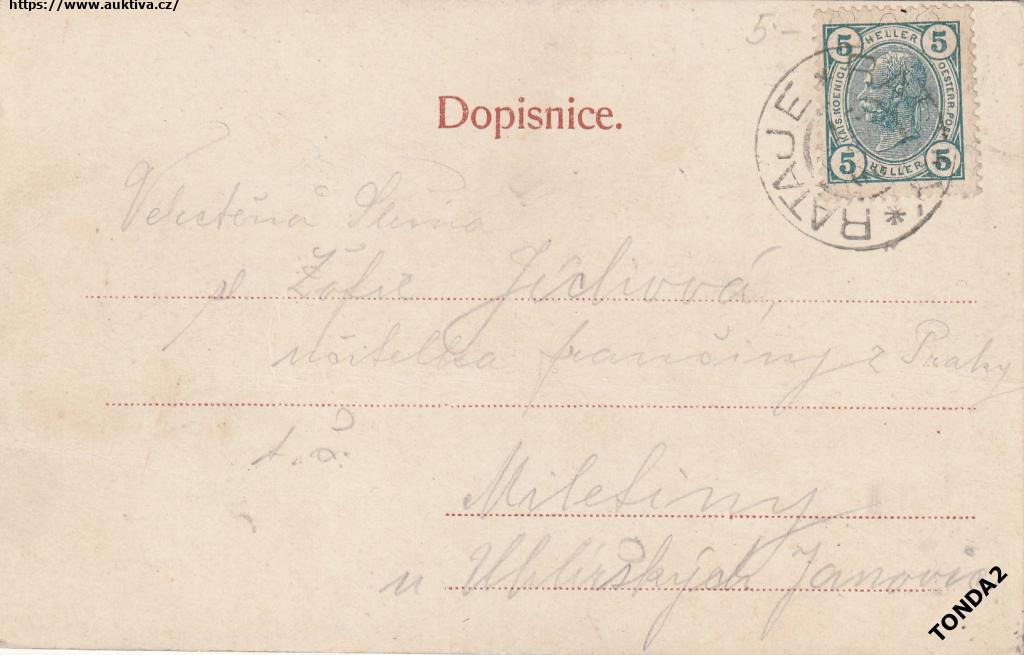 https://www.auktiva.cz/
5-
5 HELLER 5
KAIS. KOENIGL. OESTERR. POST
5 HELLER 5
RATAJE
Dopisnice.
Velectěná Slečna
sl. Žofie
učitelka frančiny z Prahy
t. č.
Miletiny
u Uhlířských Janovic
TONDA2